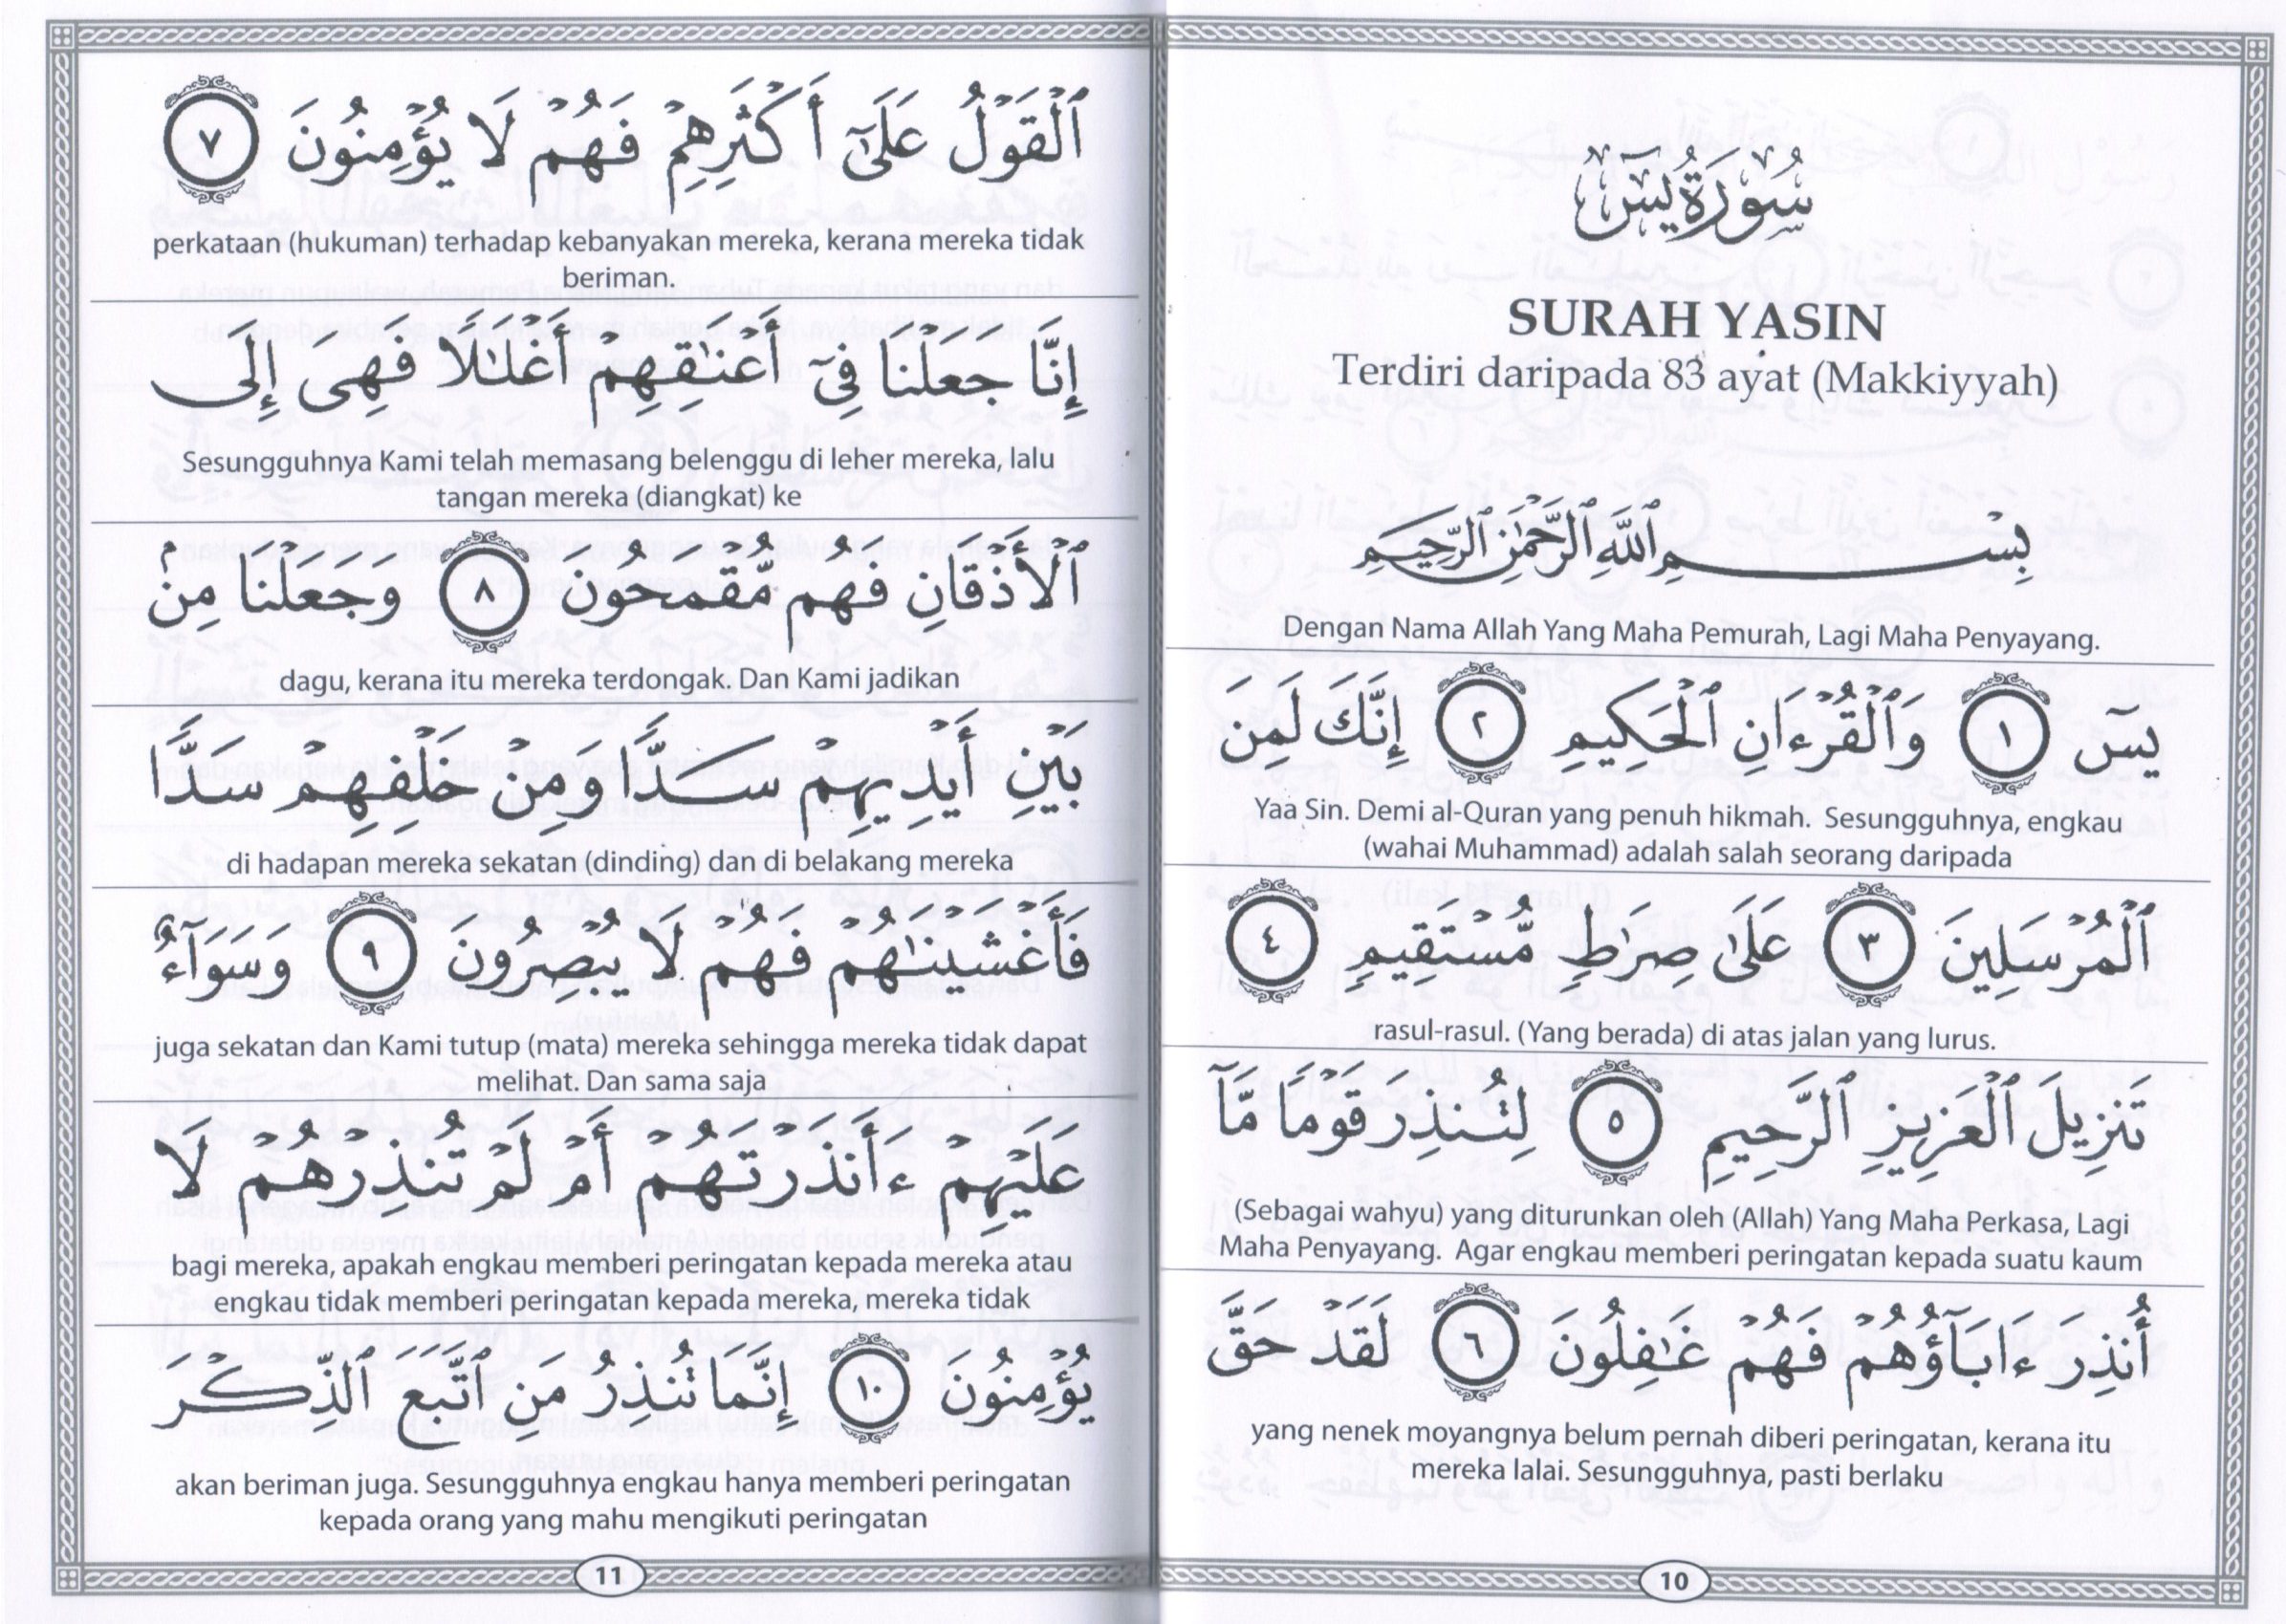 سُورَةُ يسٓ
SURAH YASIN
Terdiri daripada 83 ayat (Makkiyyah)
بِسْمِ ٱللَّهِ ٱلرَّحْمَٰنِ ٱلرَّحِيمِ
Dengan Nama Allah Yang Maha Pemurah, Lagi Maha Penyayang.
يسٓ ١ وَٱلْقُرْءَانِ ٱلْحَكِيمِ ٢ إِنَّكَ لَمِنَ
Yaa Sin. Demi al-Quran yang penuh hikmah. Sesungguhnya, engkau
(wahai Muhammad) adalah salah seorang daripada
ٱلْمُرْسَلِينَ ٣ عَلَىٰ صِرَٰطٍ مُّسْتَقِيمٍ ٤
rasul-rasul. (Yang berada) di atas jalan yang lurus.
تَنزِيلَ ٱلْعَزِيزِ ٱلرَّحِيمِ ٥ لِتُنذِرَ قَوْمًا مَّآ
(Sebagai wahyu) yang diturunkan oleh (Allah) Yang Maha Perkasa, Lagi
Maha Penyayang. Agar engkau memberi peringatan kepada suatu kaum
أُنذِرَ ءَابَآؤُهُمْ فَهُمْ غَٰفِلُونَ ٦ لَقَدْ حَقَّ
yang nenek moyangnya belum pernah diberi peringatan, kerana itu
mereka lalai. Sesungguhnya, pasti berlaku
10
ٱلْقَوْلُ عَلَىٰٓ أَكْثَرِهِمْ فَهُمْ لَا يُؤْمِنُونَ ٧
perkataan (hukuman) terhadap kebanyakan mereka, kerana mereka tidak
beriman.
إِنَّا جَعَلْنَا فِىٓ أَعْنَٰقِهِمْ أَغْلَٰلًا فَهِىَ إِلَى
Sesungguhnya Kami telah memasang belenggu di leher mereka, lalu
tangan mereka (diangkat) ke
ٱلْأَذْقَانِ فَهُم مُّقْمَحُونَ ٨ وَجَعَلْنَا مِنۢ
dagu, kerana itu mereka terdongak. Dan Kami jadikan
بَيْنِ أَيْدِيهِمْ سَدًّا وَمِنْ خَلْفِهِمْ سَدًّا
di hadapan mereka sekatan (dinding) dan di belakang mereka
فَأَغْشَيْنَٰهُمْ فَهُمْ لَا يُبْصِرُونَ ٩ وَسَوَآءٌ
juga sekatan dan Kami tutup (mata) mereka sehingga mereka tidak dapat
melihat. Dan sama saja
عَلَيْهِمْ ءَأَنذَرْتَهُمْ أَمْ لَمْ تُنذِرْهُمْ لَا
bagi mereka, apakah engkau memberi peringatan kepada mereka atau
engkau tidak memberi peringatan kepada mereka, mereka tidak
يُؤْمِنُونَ ١٠ إِنَّمَا تُنذِرُ مَنِ ٱتَّبَعَ ٱلذِّكْرَ
akan beriman juga. Sesungguhnya engkau hanya memberi peringatan
kepada orang yang mahu mengikuti peringatan
11